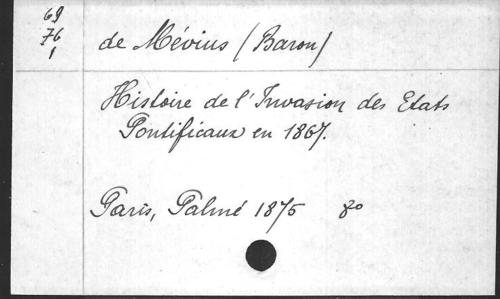 69
76
1
de Mévius (Baron)
Histoire de l'Invasion des Etats
Pontificaux en 1867.
Paris, Palmé 1875 8o